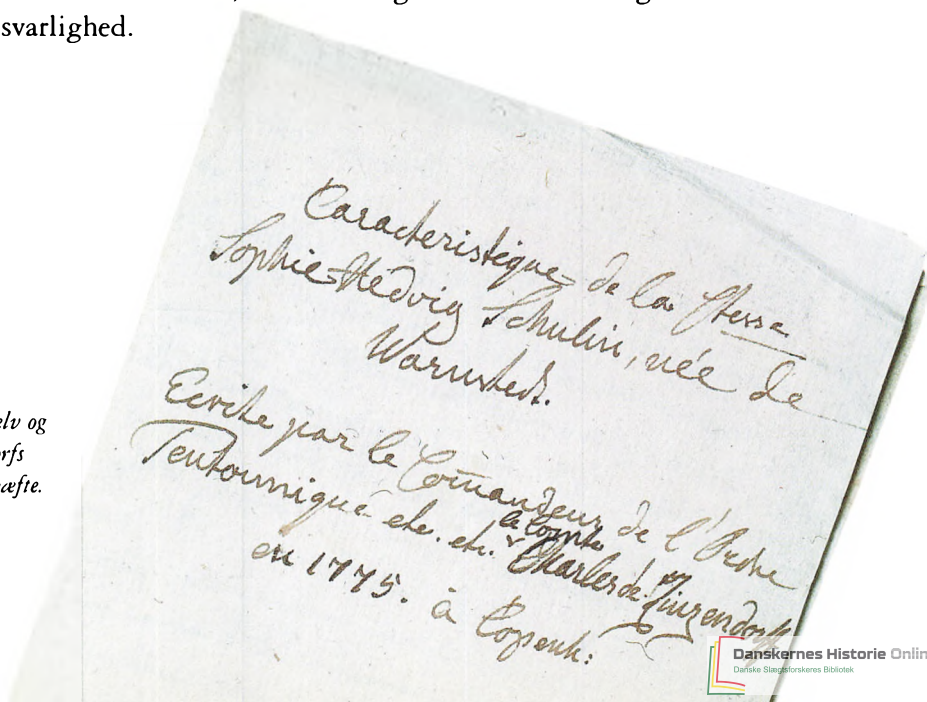 svarlighed.
Caracteristique de la Ctesse
Sophie-Hedvig Schulin, née de
Warnstedt.
Ecrite par le Com̄andeur de l'Ordre
Teutonnique etc. etc. le Comte Charles de Zinzendorf
en 1775. à Copenh:
elv og
orfs
æfte.
Danskernes Historie Onlin
Danske Slægtsforskeres Bibliotek